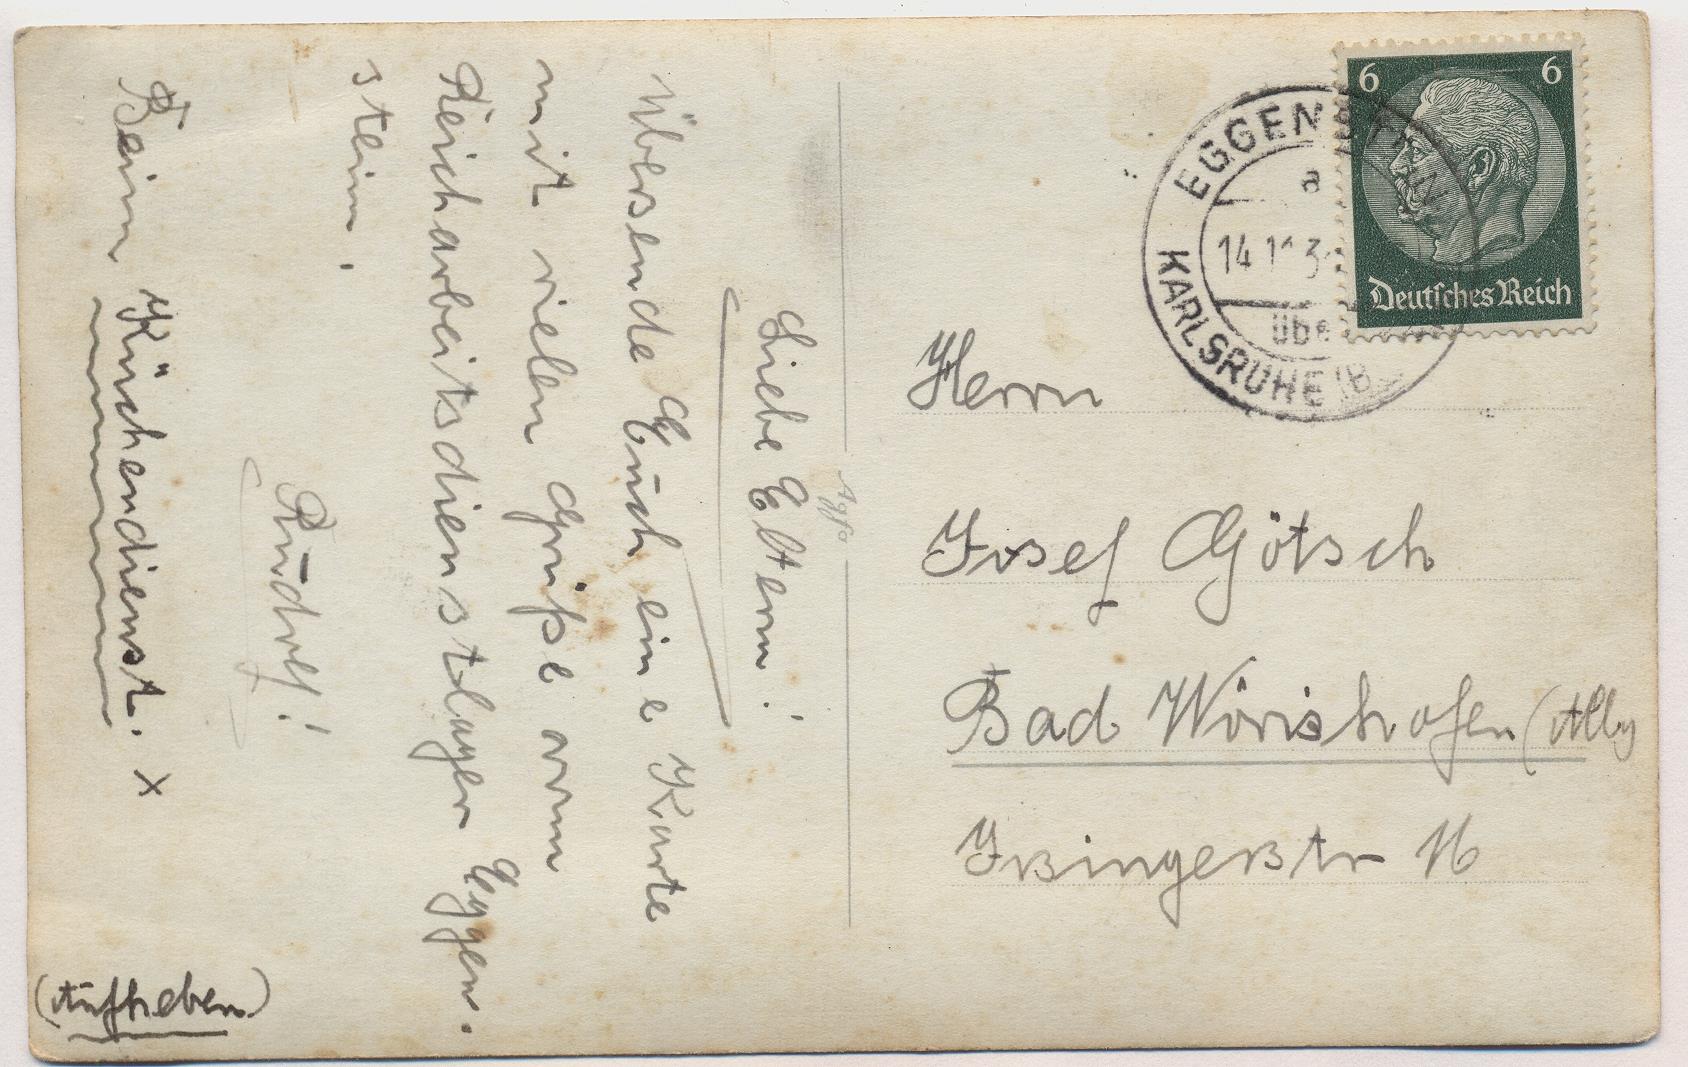 Liebe Eltern!
Übersende Euch eine Karte
mit vielen Grüße vom
Reicharbeitsdienstlager Eggen-
stein.
Rudolf!
Beim Küchendienst. x
(Aufheben)
6 6
Deutsches Reich
EGGENSTEIN
a
14.11.3
über
KARLSRUHE (B
Herrn
Josef Götsch
Bad Wörishofen (Allg
Irsingerstr 16
Agfa